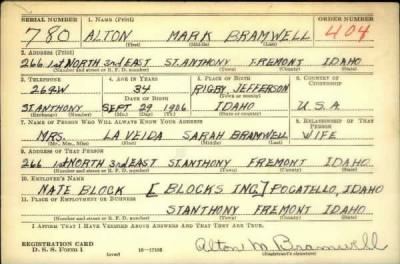 SERIAL NUMBER 1. NAME (Print) ORDER NUMBER
780 ALTON MARK BRAMWELL 404
(First) (Middle) (Last)
2. ADDRESS (Print)
266 1st NORTH 3rd EAST ST. ANTHONY FREMONT IDAHO
(Number and street or R. F. D. number) (Town) (County) (State)
3. TELEPHONE 4. AGE IN YEARS 5. PLACE OF BIRTH 6. COUNTRY OF CITIZENSHIP
269W 34 RIGBY, JEFFERSON
DATE OF BIRTH (Town or county)
ST ANTHONY SEPT 29 1906 IDAHO U.S.A
(Exchange) (Number) (Mo.) (Day) (Yr.) (State or country)
7. NAME OF PERSON WHO WILL ALWAYS KNOW YOUR ADDRESS 8. RELATIONSHIP OF THAT PERSON
MRS. LA VEIDA SARAH BRAMWELL WIFE
(Mr., Mrs., Miss) (First) (Middle) (Last)
9. ADDRESS OF THAT PERSON
266 1st NORTH 3rd EAST ST ANTHONY FREMONT IDAHO.
(Number and street or R. F. D. number) (Town) (County) (State)
10. EMPLOYER'S NAME
NATE BLOCK [BLOCKS INC.] POCATELLO, IDAHO
11. PLACE OF EMPLOYMENT OR BUSINESS
ST ANTHONY FREMONT IDAHO
(Number and street or R. F. D. number) (Town) (County) (State)
I AFFIRM THAT I HAVE VERIFIED ABOVE ANSWERS AND THAT THEY ARE TRUE.
REGISTRATION CARD
D. S. S. Form 1 16-17105 Alton M. Bramwell
(over) (Registrant's signature)